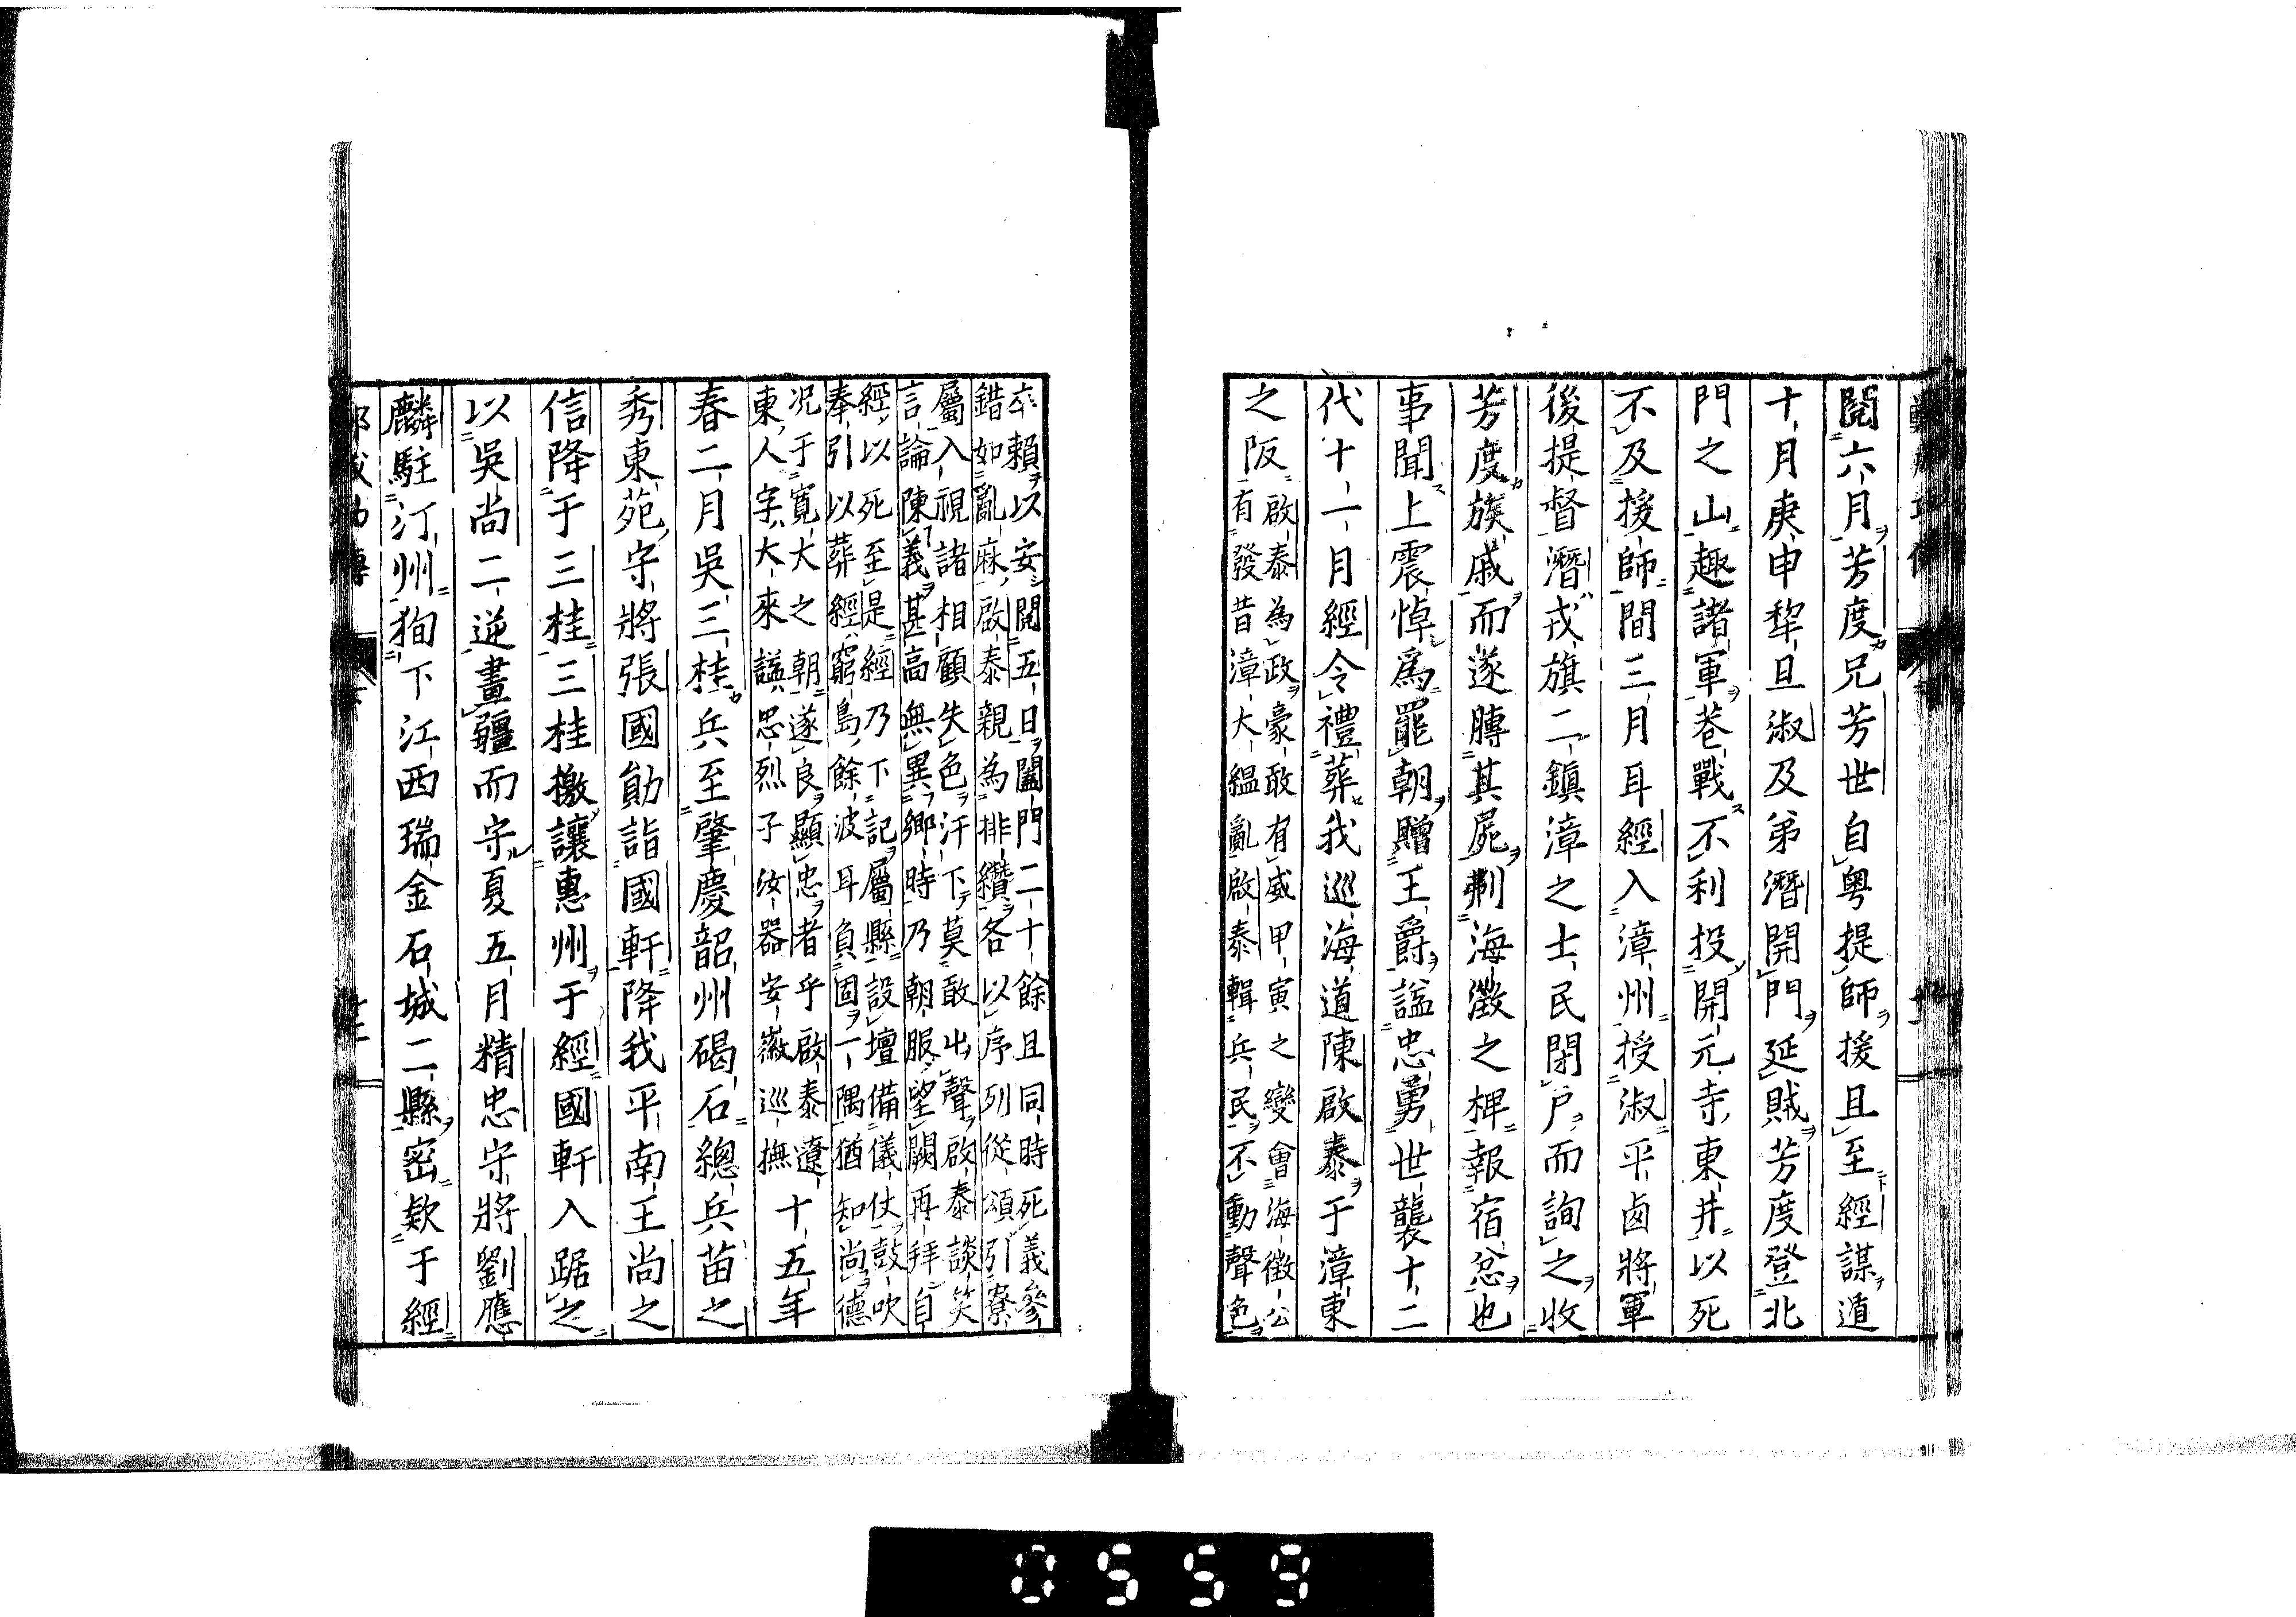 閱六月芳度兄芳世自粵提師援且至經謀遁
十月庚申犂旦淑及弟潛開門延賊芳度登北
門之山趣諸軍巷戰不利投開元寺東井以死
不及援師間三月耳經入漳州授淑平鹵將軍
後提督潛戎旗二鎮漳之士民閉戶而詢之收
芳度族戚而遂膞其屍剸海澂之椑報宿忿也
事聞上震悼為罷朝贈王爵謚忠勇世襲十二
代十一月經令禮葬我巡海道陳啟泰于漳東
之阪
啟泰為政豪敢有威甲寅之變會海徵公
有發昔漳大縕亂啟泰輯兵民不動聲色
卒賴以安閱五日闔門二十餘且同時死義參
錯如亂麻啟泰親為排纘各以序列從頌引寮
屬入視諸相顧失色汗下莫敢出聲啟泰談笑
言論陳義甚高無異鄉時乃朝服望闕再拜自
經以死至是經乃下記屬縣設壇備儀仗鼓吹
奉引以葬經窮島餘波耳負固一隅猶知尚德
況于寬大之朝遂良顯忠者乎啟泰遼
東人字大來謚忠烈子汝器安徽巡撫
十五年
春二月吳三桂兵至肇慶韶州碣石總兵苗之
秀東苑守將張國勛詣國軒降我平南王尚之
信降于三桂三桂檄讓惠州于經國軒入踞之
以吳尚二逆畫疆而守夏五月精忠守將劉應
麟駐汀州狥下江西瑞金石城二縣密欵于經
0559